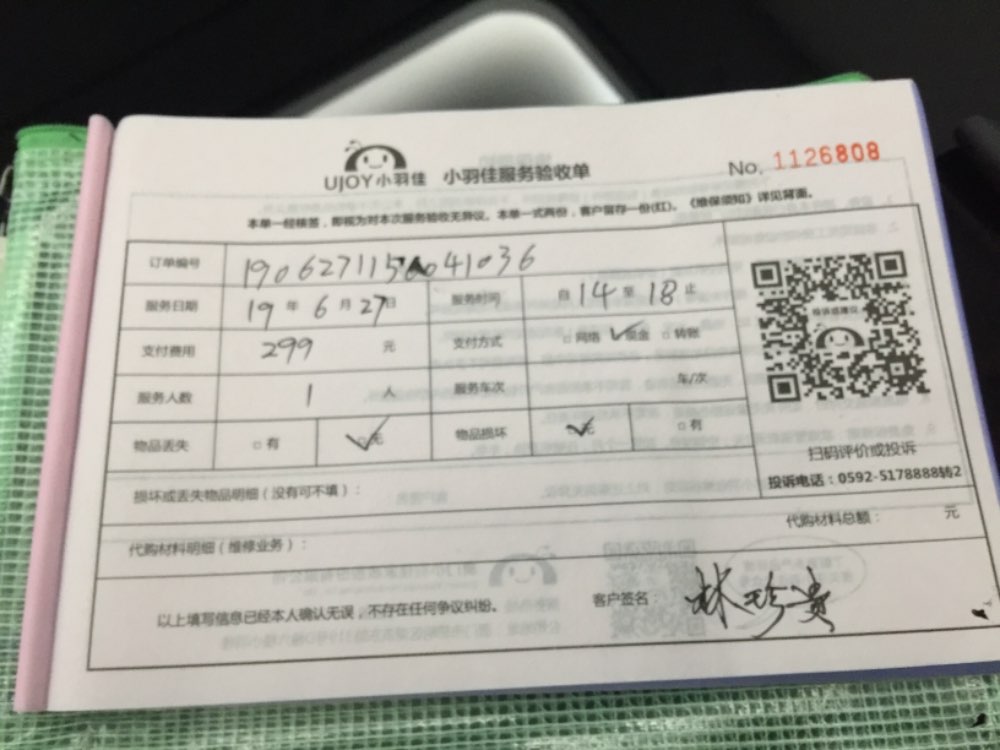 UJOY小羽佳 小羽佳服务验收单 No. 1126808
本单一经核签，即视为对本次服务验收无异议。本单一式两份，客户留存一份(红)。《维保须知》详见背面。
订单编号
服务日期 19 年 6 月 27 日 服务时间 自 14 至 18 止
支付费用 299 元 支付方式 □网络 ✓现金 □转账
服务人数 1 人 服务车次 车/次
物品丢失 □有 ✓无 物品损坏 ✓无 □有
投诉或建议
扫码评价或投诉
投诉电话：0592-5178888转2
损坏或丢失物品明细（没有可不填）：
代购材料明细（维修业务）： 代购材料总额： 元
以上填写信息已经本人确认无误，不存在任何争议纠纷。 客户签名： 林珍贵